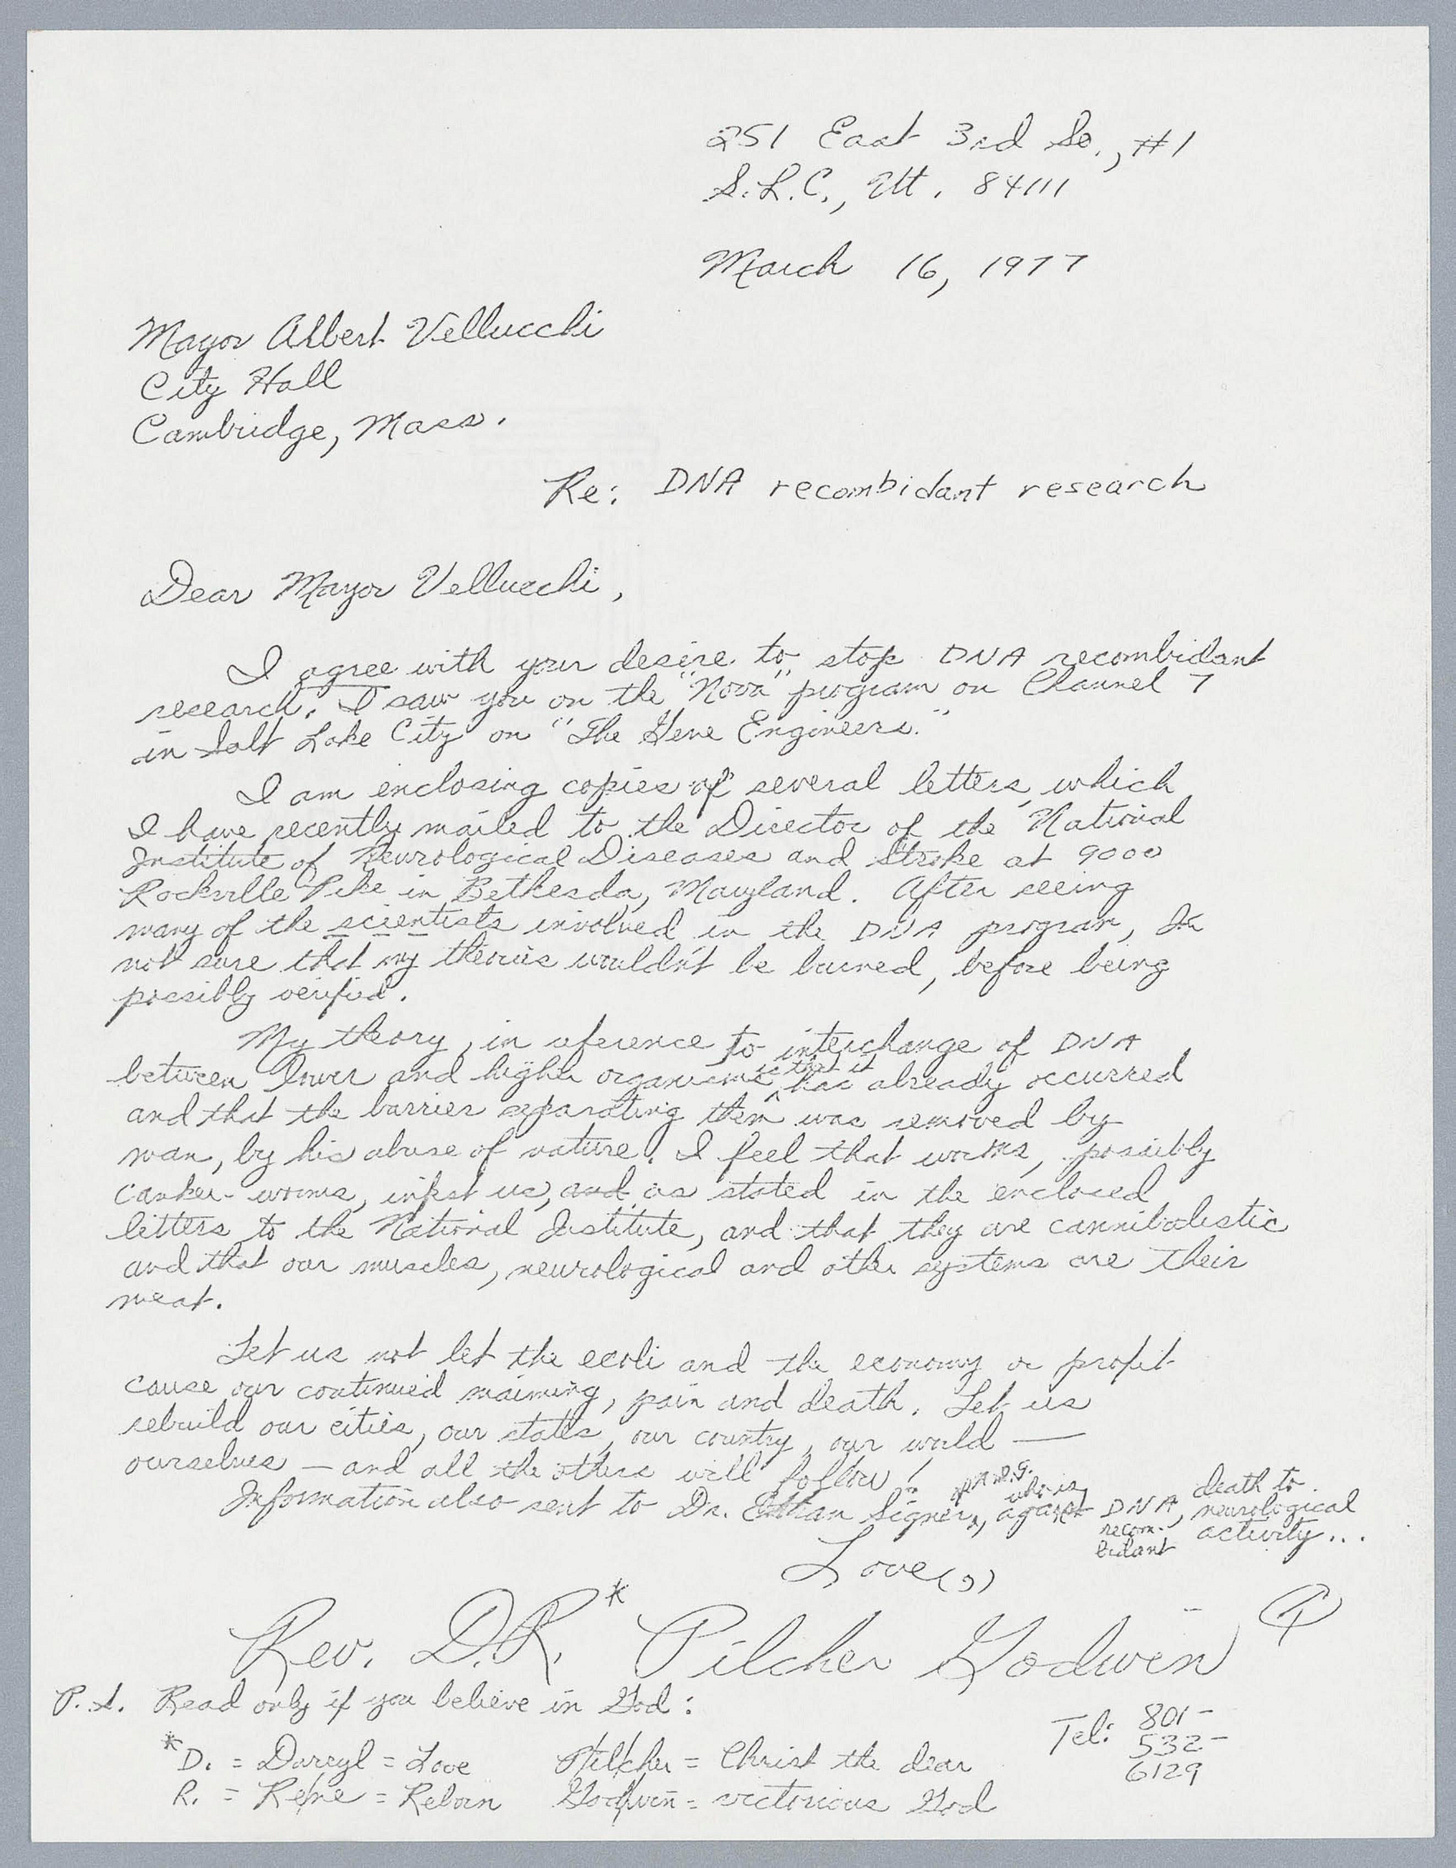 251 East 3rd So., #1
S.L.C., Ut. 84111
March 16, 1977
Mayor Albert Vellucchi
City Hall
Cambridge, Mass.
Re: DNA recombidant research
Dear Mayor Vellucchi,
I agree with your desire to stop DNA recombidant
research. I saw you on the "Nova" program on Channel 7
in Salt Lake City on "The Gene Engineers."
I am enclosing copies of several letters which
I have recently mailed to the Director of the National
Institute of Neurological Diseases and Stroke at 9000
Rockville Pike in Bethesda, Maryland. After seeing
many of the scientists involved in the DNA program, I'm
not sure that my theories wouldn't be burned, before being
possibly verified.
My theory, in reference to interchange of DNA
between lower and higher organisms is that it has already occurred
and that the barrier separating them was removed by
man, by his abuse of nature. I feel that worms, possibly
canker-worms, infest us, and as stated in the enclosed
letters to the National Institute, and that they are cannibalistic
and that our muscles, neurological and other systems are their
meat.
Let us not let the ecoli and the economy or profit
cause our continued maiming, pain and death. Let us
rebuild our cities, our states, our country, our world —
ourselves — and all the others will follow!
Information also sent to Dr. Ethan Signer, who is against DNA recom-bidant, death to neurological activity...
Love(s)
Rev. D.R.* Pilcher Godwin
P.S. Read only if you believe in God:
Tel: 801-
532-
6129
*D. = Darryl = Love Pilcher = Christ the dear
R. = Rene = Reborn Godwin = victorious God